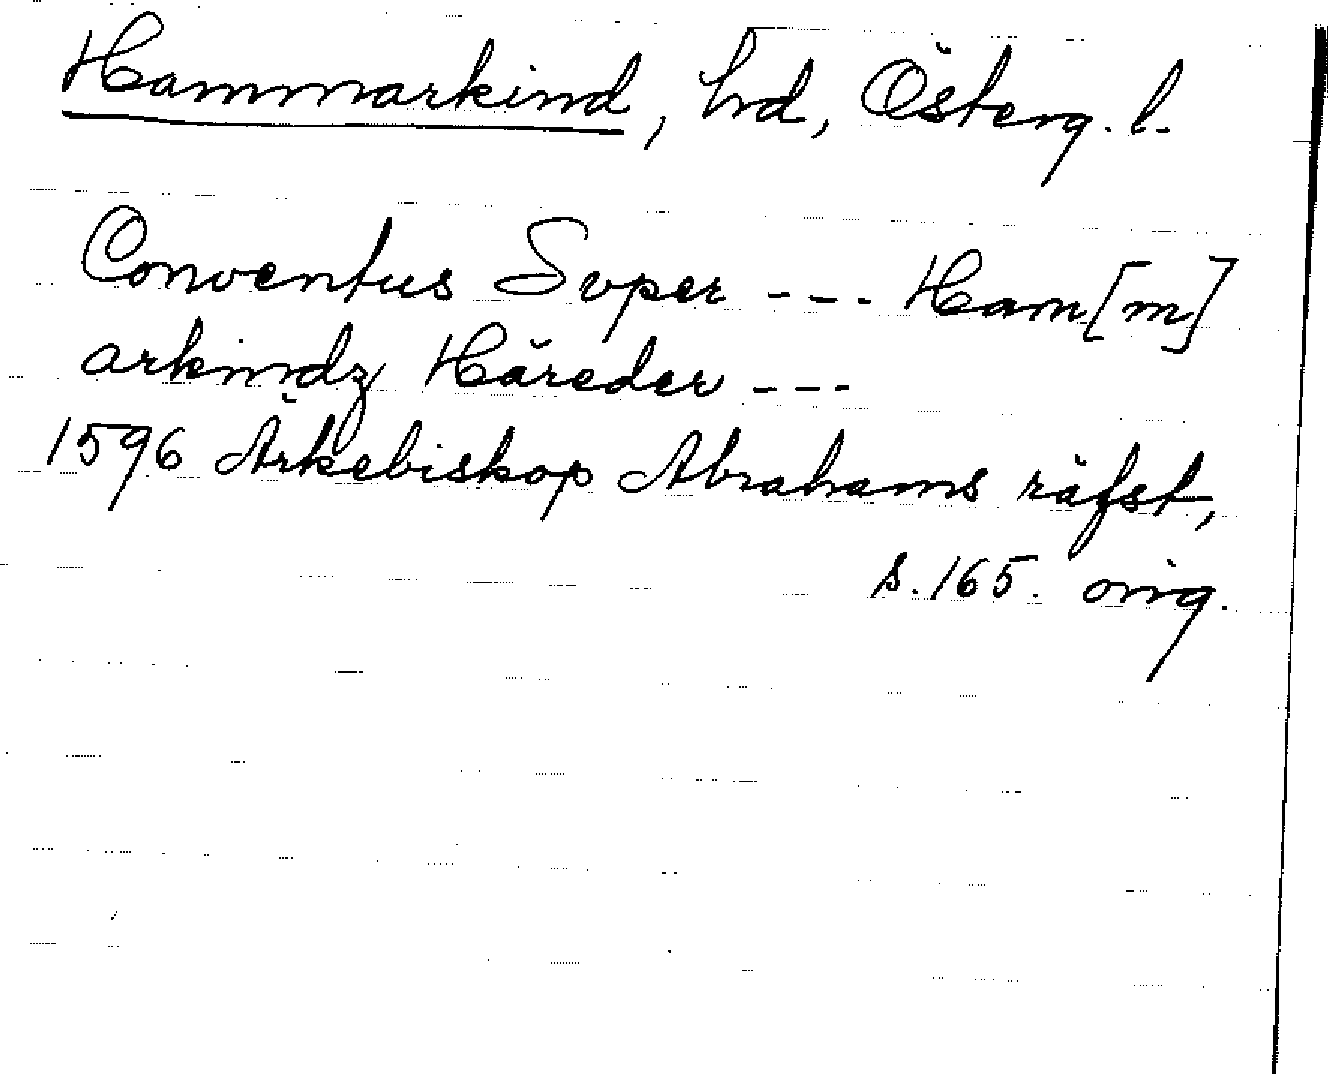 Hammarkind, hd, Österg. l.
Conventus Svper --- Ham[m]
arkindz Häreder ---
1596 Ärkebiskop Abrahams räfst,
s. 165. orig.